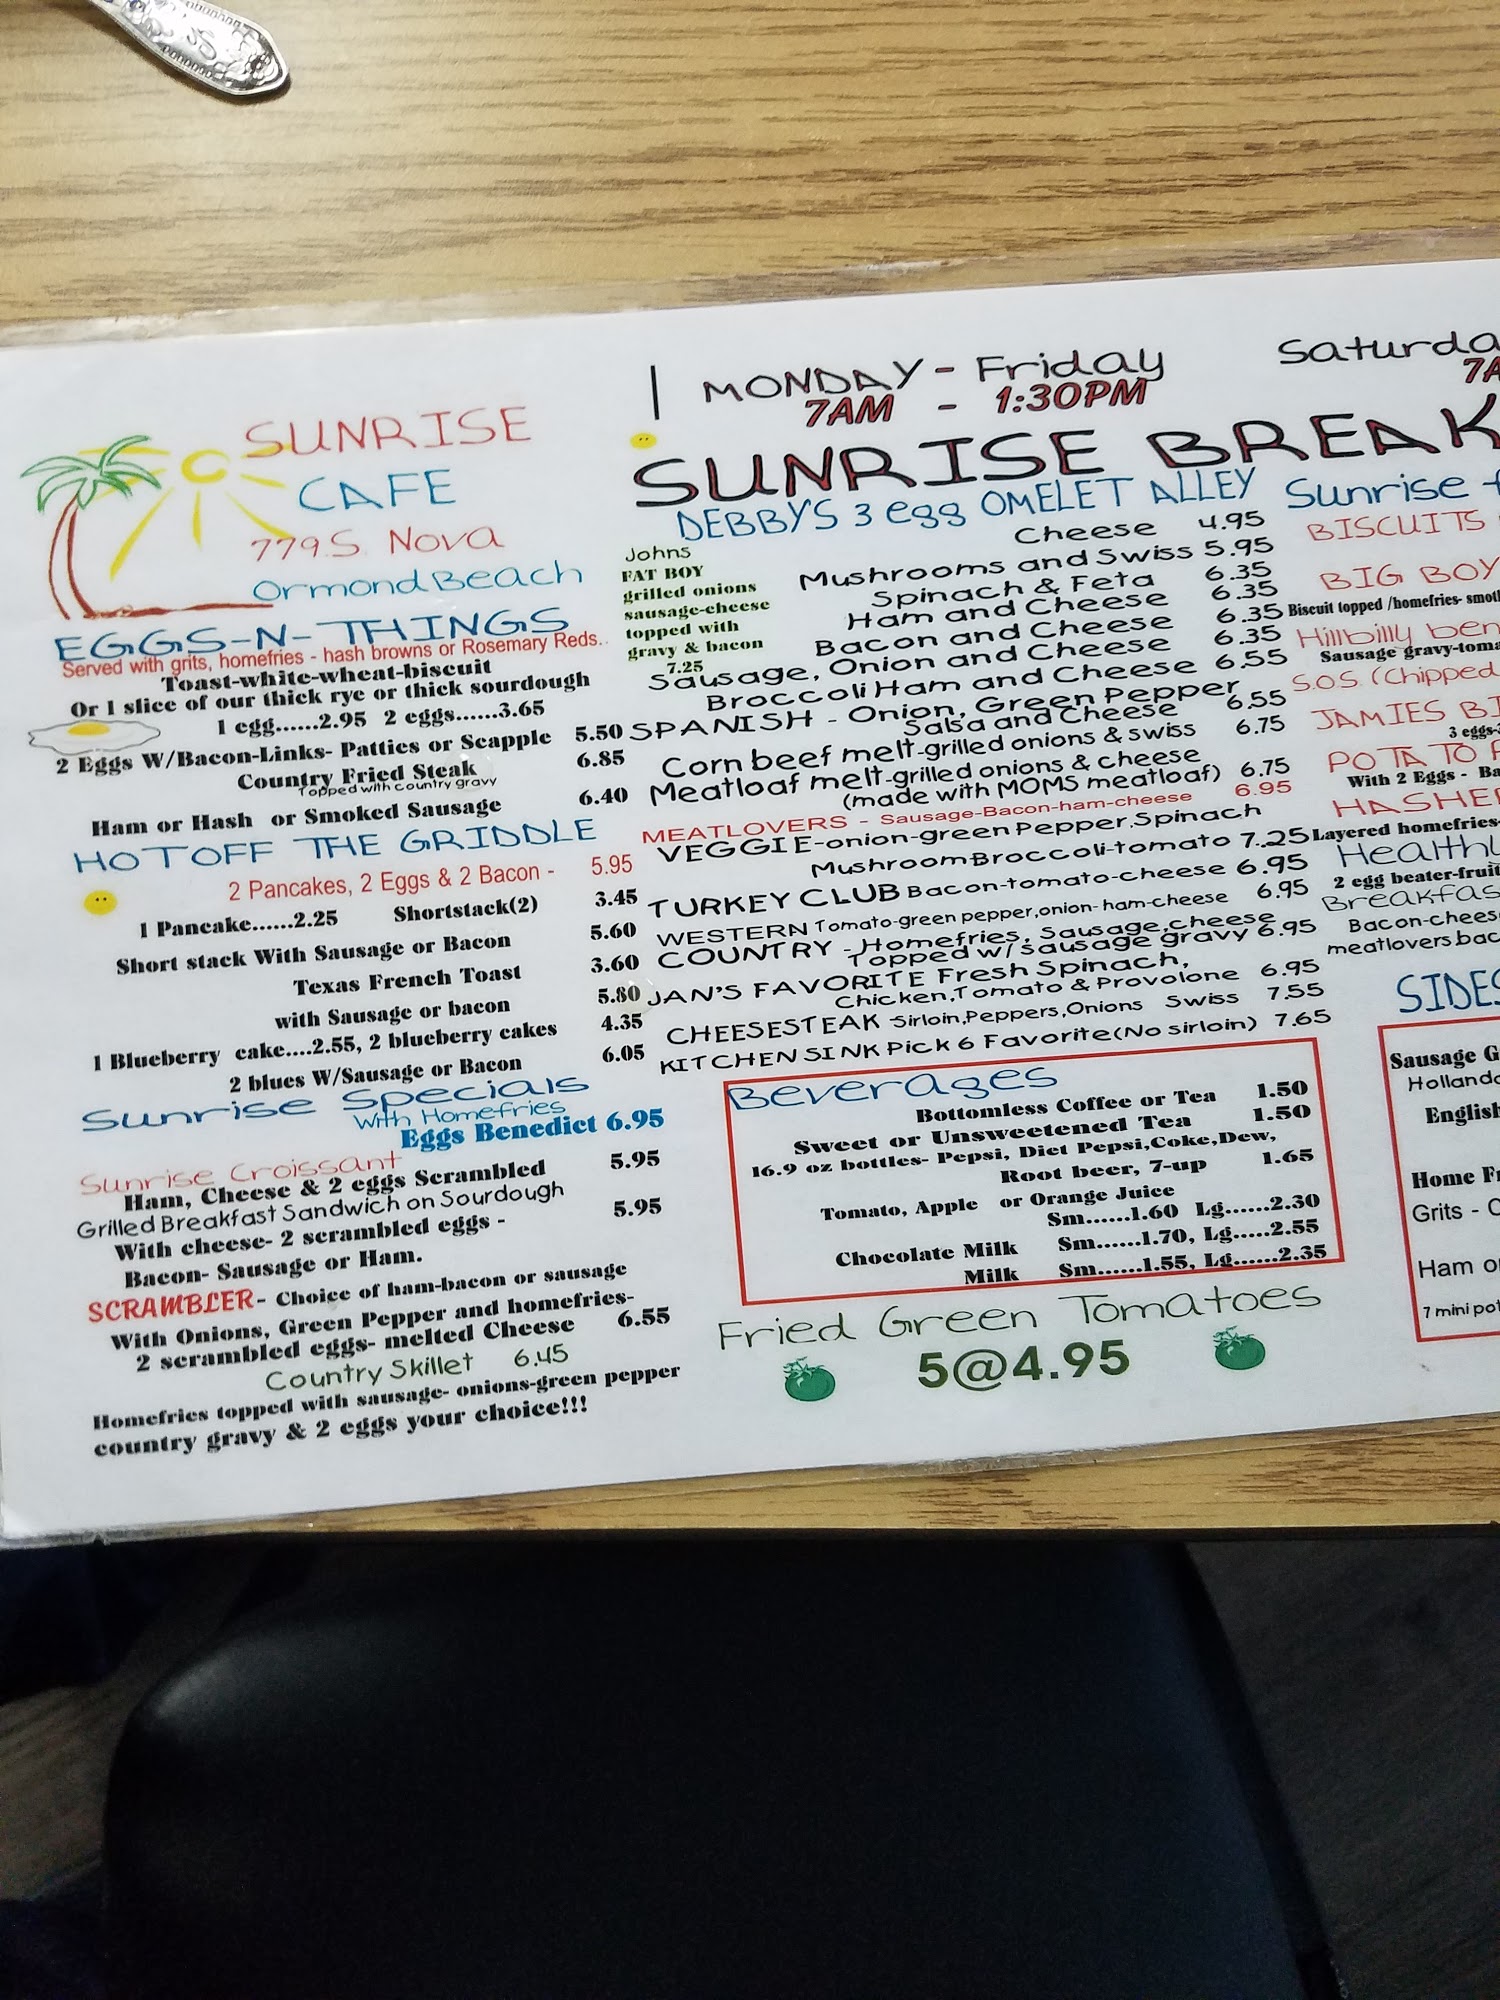 SUNRISE
CAFE
779 S. Nova
Ormond Beach
EGGS-N-THINGS
Served with grits, homefries - hash browns or Rosemary Reds..
Toast-white-wheat-biscuit
Or 1 slice of our thick rye or thick sourdough
1 egg......2.95 2 eggs......3.65
2 Eggs W/Bacon-Links- Patties or Scapple 5.50
Country Fried Steak 6.85
Topped with country gravy
Ham or Hash or Smoked Sausage 6.40
HOT OFF THE GRIDDLE
2 Pancakes, 2 Eggs & 2 Bacon - 5.95
1 Pancake......2.25 Shortstack(2) 3.45
Short stack With Sausage or Bacon 5.60
Texas French Toast 3.60
with Sausage or bacon 5.80
1 Blueberry cake....2.55, 2 blueberry cakes 4.35
2 blues W/Sausage or Bacon 6.05
Sunrise Specials
With Homefries
Eggs Benedict 6.95
Sunrise Croissant
Ham, Cheese & 2 eggs Scrambled 5.95
Grilled Breakfast Sandwich on Sourdough
With cheese- 2 scrambled eggs - 5.95
Bacon- Sausage or Ham.
SCRAMBLER- Choice of ham-bacon or sausage
With Onions, Green Pepper and homefries-
2 scrambled eggs- melted Cheese 6.55
Country Skillet 6.45
Homefries topped with sausage- onions-green pepper
country gravy & 2 eggs your choice!!!
| MONDAY - Friday
7AM - 1:30PM
SUNRISE BREAK
DEBBY'S 3 egg OMELET ALLEY
Johns
FAT BOY
grilled onions
sausage-cheese
topped with
gravy & bacon
7.25
Cheese 4.95
Mushrooms and Swiss 5.95
Spinach & Feta 6.35
Ham and Cheese 6.35
Bacon and Cheese 6.35
Sausage, Onion and Cheese 6.35
Broccoli Ham and Cheese 6.55
SPANISH - Onion, Green Pepper
Salsa and Cheese 6.55
Corn beef melt-grilled onions & swiss 6.75
Meatloaf melt-grilled onions & cheese
(made with MOMS meatloaf) 6.75
MEATLOVERS - Sausage-Bacon-ham-cheese 6.95
VEGGIE-onion-green Pepper.Spinach
Mushroom-Broccoli-tomato 7.25
TURKEY CLUB Bacon-tomato-cheese 6.95
WESTERN Tomato-green pepper,onion-ham-cheese 6.95
COUNTRY - Homefries, Sausage,cheese
Topped w/sausage gravy 6.95
JAN'S FAVORITE Fresh Spinach,
Chicken,Tomato & Provolone 6.95
CHEESESTEAK -Sirloin,Peppers,Onions Swiss 7.55
KITCHEN SINK Pick 6 Favorite(No sirloin) 7.65
Beverages
Bottomless Coffee or Tea 1.50
Sweet or Unsweetened Tea 1.50
16.9 oz bottles- Pepsi, Diet Pepsi,Coke,Dew,
Root beer, 7-up 1.65
Tomato, Apple or Orange Juice
Sm......1.60 Lg......2.30
Chocolate Milk Sm......1.70, Lg.....2.55
Milk Sm......1.55, Lg......2.35
Fried Green Tomatoes
5@4.95
Saturda
7A
Sunrise f
BISCUITS
BIG BOY
Biscuit topped /homefries- smot
Hillbilly ben
Sausage gravy-toma
S.O.S. (Chipped
JAMIES BI
3 eggs-
POTATO P
With 2 Eggs - Ba
HASHE
Layered homefries-
Healthy
2 egg beater-fruit
Breakfas
Bacon-chees
meatlovers.bac
SIDES
Sausage G
Hollanda
English
Home Fr
Grits - C
Ham o
7 mini pot